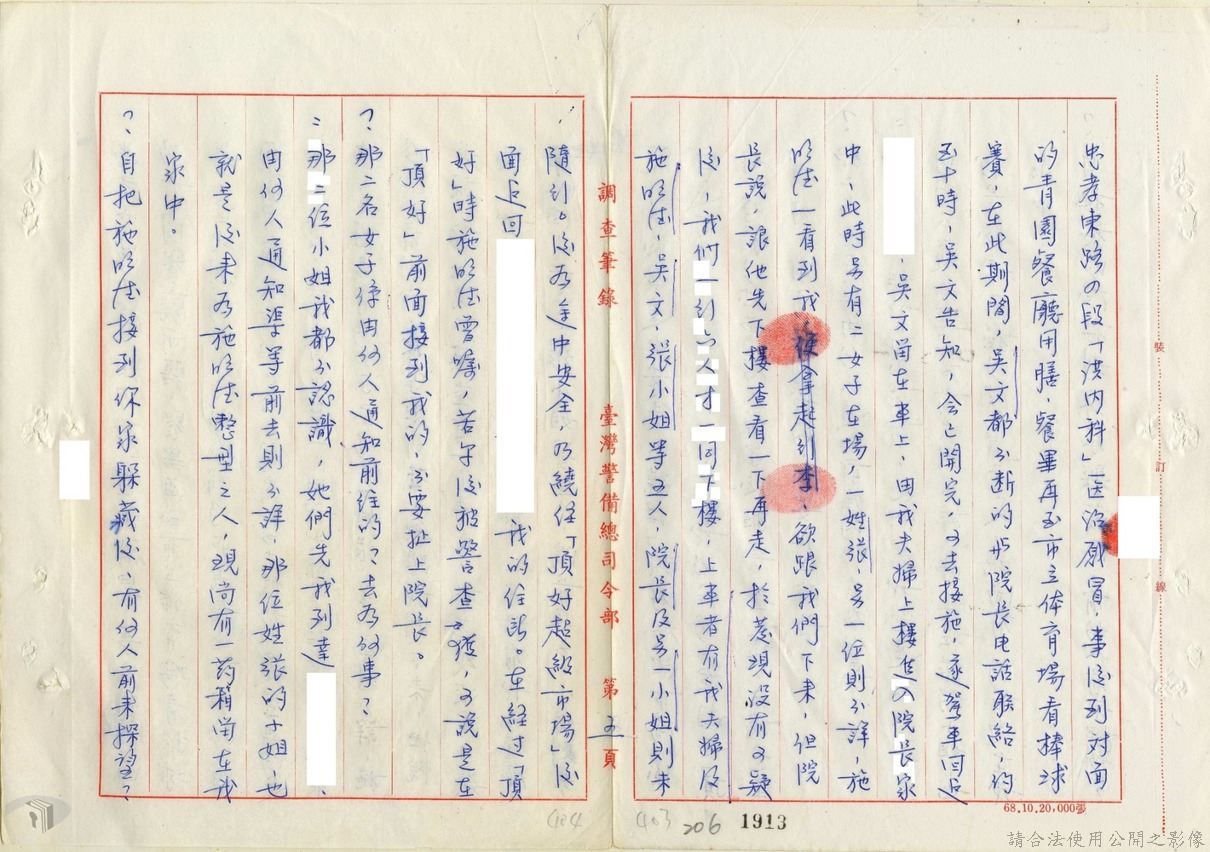 忠孝東路の段「洪内科」医治感冒,事后到对面
的青園餐廳用膳,餐畢再至市立体育場看棒球
賽,在此期間,吳文都不断的與院長电話联絡,約
五十時,吳文告知,会已開完,可去接施,遂驾車回返
,吳文留在車上,由我夫婦上樓進入院長家
中,此時另有二女子在場,一姓張,另一位則不詳,施
明德一看到我便拿起行李,欲跟我們下来,但院
長說,讓他先下樓查看一下再走,於是現没有可疑
后,我們一行六人才一同下樓,上車者有我夫婦及
施明德,吳文,張小姐等五人,院長及另一小姐則未
調查筆錄 臺灣警備總司令部 第五頁
隨行。后为途中安全,乃繞往「頂好超級市場」后
面返回 我的住所。在経过「頂
好」時施明德曾嘱,若今后被警查獲,可說是在
「頂好」前面接到我的,不要扯上院長。
?、那二名女子係由何人通知前往的?去为何事?
:那二位小姐我都不認識,她們先我到達 、
由何人通知渠等前去則不詳,那位姓張的小姐,也
就是后来为施明德整型之人,現尚有一药箱留在我
家中。
?、自把施明德接到你家躲藏后、有何人前来探望?
裝
訂
線
68.10.20,000張
(404
(403
206
1913
請合法使用公開之影像